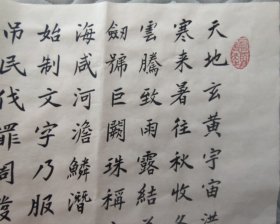 天地玄黄宇宙洪
寒来暑往秋收冬
雲騰致雨露結
劍號巨闕珠稱
海咸河澹鱗潛
始制文字乃服
吊民伐罪周發